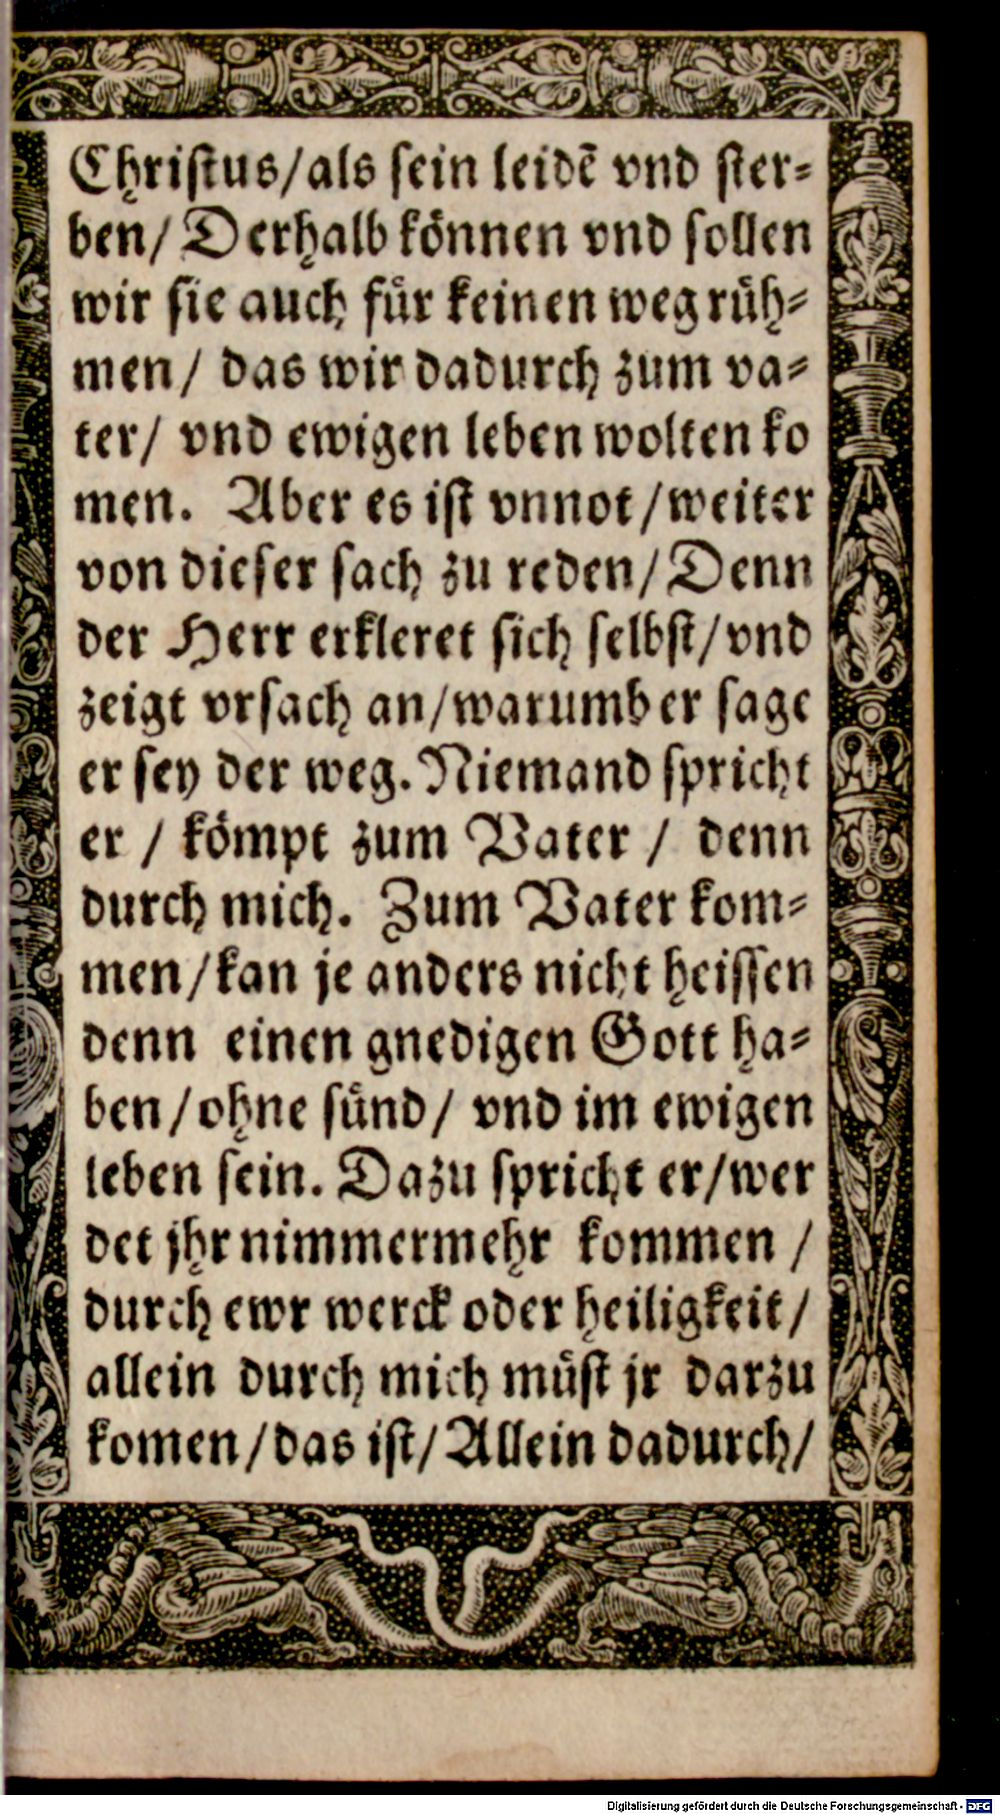 Christus/als sein leidẽ vnd ster⸗
ben/ Derhalb können vnd sollen
wir sie auch für keinen weg rüh⸗
men/ das wir dadurch zum va⸗
ter/ vnd ewigen leben wolten ko
men. Aber es ist vnnot/weiter
von dieser sach zu reden/Denn
der Herr erkleret sich selbst/vnd
zeigt vrsach an/warumb er sage
er sey der weg. Niemand spricht
er / kömpt zum Vater / denn
durch mich. Zum Vater kom⸗
men/kan je anders nicht heissen
denn einen gnedigen Gott ha⸗
ben/ohne sünd/ vnd im ewigen
leben sein. Dazu spricht er/wer
det jhr nimmermehr kommen /
durch ewr werck oder heiligkeit/
allein durch mich müst jr darzu
komen/das ist/Allein dadurch/
Digitalisierung gefördert durch die Deutsche Forschungsgemeinschaft - DFG